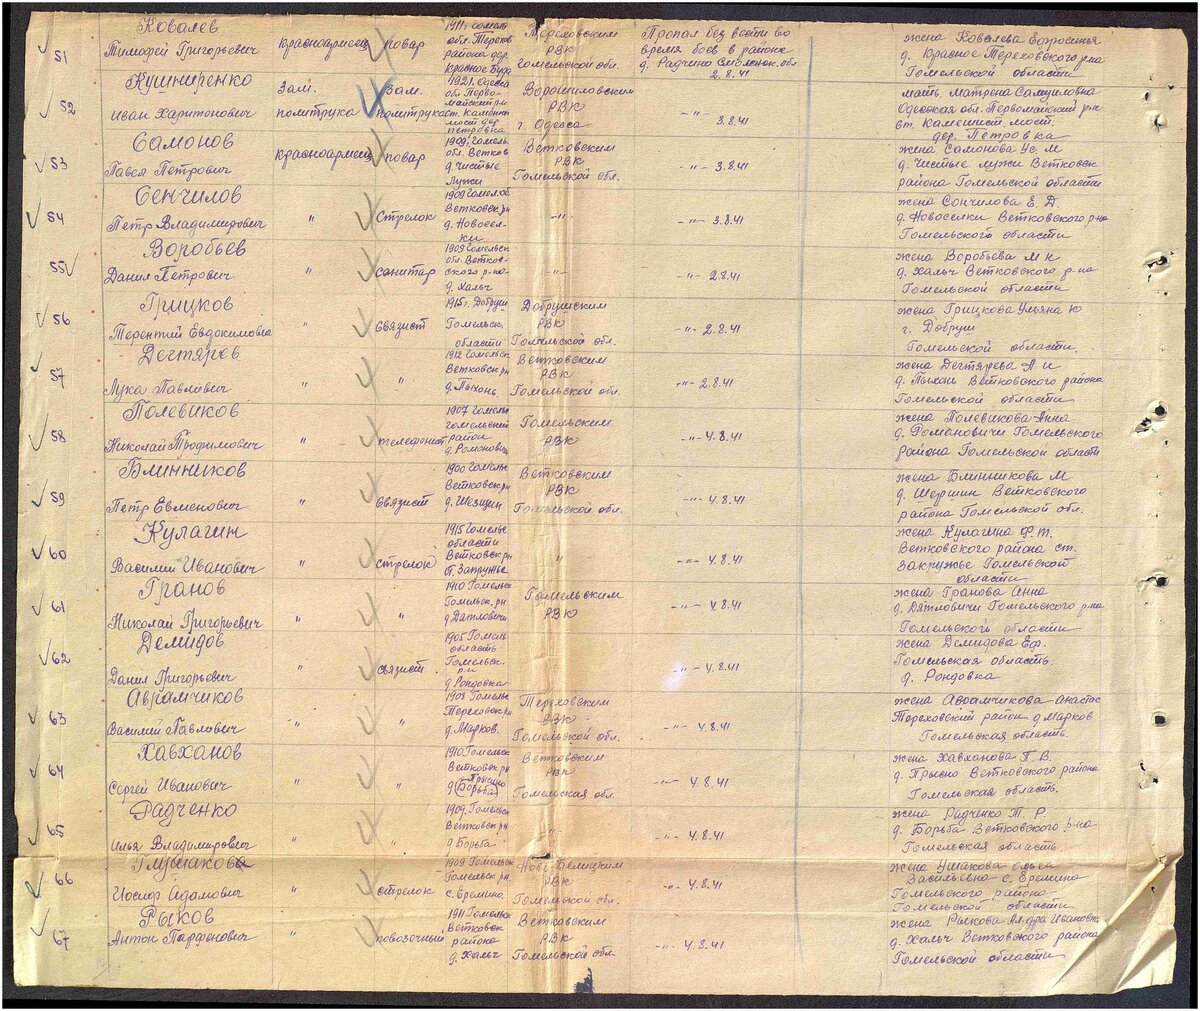 51 Ковалев Тимофей Григорьевич красноармеец повар 1911г. Гомель обл. Терехов района дер. Красное Буда Тереховским РВК Гомельской обл. Пропал без вести во время боев в районе д. Радчино Смоленск. обл 2.8.41 жена Ковалева Ефросинья д. Красное Тереховского р-на Гомельской области
52 Кушниренко Иван Харитонович Зам. политрука Зам. политрука 1921. Одесса обл. Перво-майский р-н ст. Каменны мост дер Петровка Ворошиловским РВК г. Одесса -"- 3.8.41 мать. Матрена Самуиловна Одесская обл. Первомайский р-н ст. Каменист мост. дер. Петровка
53 Самонов Павел Петрович красноармеец повар 1909. Гомель. обл. Ветков д. Чистые Лужи Ветковским РВК Гомельской обл. -"- 3.8.41 жена Самонова Ус. М д. Чистые лужи Ветковск района Гомельской области
54 Сенчилов Петр Владимирович " Стрелок 1909 Гомел. об. Ветковск. рн д. Новосел-ки -"- -"- 3.8.41 жена Сончилова Е. Д. д. Новоселки Ветковского р-на Гомельской области
55 Воробьев Данил Петрович " санитар 1909 Гомельск обл. Ветков-ского р-на д. Хальч -"- -"- 2.8.41 жена Воробьева М н д. Хальч Ветковского р-на Гомельской области
56 Грицков Терентий Евдокимович " Связист 1915г. Добруш Гомельск. области Добрушским РВК Гомельской обл. -"- 2.8.41 жена Грицкова Ульяна Ю г. Добруш Гомельской области.
57 Дегтярев Лука Павлович " " 1912 Гомельск. Ветковск рн д. Пыхань Ветковским РВК Гомельской обл. -"- 2.8.41 жена Дегтярева А и д. Пыхань Ветковского района Гомельской области
58 Полевиков Николай Трофимович " телефонист 1907 Гомельс гомельский район д. Романович Гомельским РВК -"- 4.8.41 жена Полевикова Анна д. Романовичи Гомельского района Гомельской области
59 Блинников Петр Евменович " Связист 1900 Гомельс Ветковск рн Ветковским РВК Гомельской обл. -"- 4.8.41 жена Блинникова М д. Шершин Ветковского района Гомельской обл.
60 Кулагин Василий Иванович " стрелок 1915 Гомельс области Ветковск рн " -"- 4.8.41 жена Кулагина Ф. т. Ветковского района ст. Закружье Гомельской области
61 Гранов Николай Григорьевич " " 1910 Гомельск Гомельск. рн д Дятловичи Гомельским РВК -"- 4.8.41 жена Гранова Анна д. Дятловичи Гомельского р-на Гомельской области
62 Демидов Данил Григорьевич " связист. 1905 Гомель область Гомельск. р-н д. Рондовка -"- 4.8.41 жена Демидова Еф. Гомельская область. д. Рондовка
63 Аврамчиков Василий Павлович " " 1903 Гомельс Тереховск рн д. Марков. Тереховским РВК Гомельской обл. -"- 4.8.41 жена Аврамчикова Анастас Тереховский район д. Марков Гомельская область.
64 Хавханов Сергей Иванович " " 1910 Гомельск Ветковск рн д. Присно (Борьба) Ветковским РВК Гомельская обл. -"- 4.8.41 жена Хавханова П. В. д. Присно Ветковского района Гомельская область.
65 Радченко Илья Владимирович " " 1909. Гомельс Ветковск рн д. Борьба -"- -"- 4.8.41 жена Радченко Т. Р. д. Борьба Ветковского р-на Гомельская область.
66 Глушаков Иосиф Адамович " стрелок 1909 Гомельск Гомельск рн. с. Еремино. Ново-Белицким РВК Гомельской обл. -"- 4.8.41 жена Ушакова Ольга Васильевна с. Еремино Гомельского района Гомельской области
67 Рыков Антон Парфенович " повозочный 1911 Гомельск Ветковск района д. Хальч Ветковским РВК Гомельской обл. -"- 4.8.41 жена Рыкова Ал-дра Ивановна д. Хальч Ветковского района Гомельской области